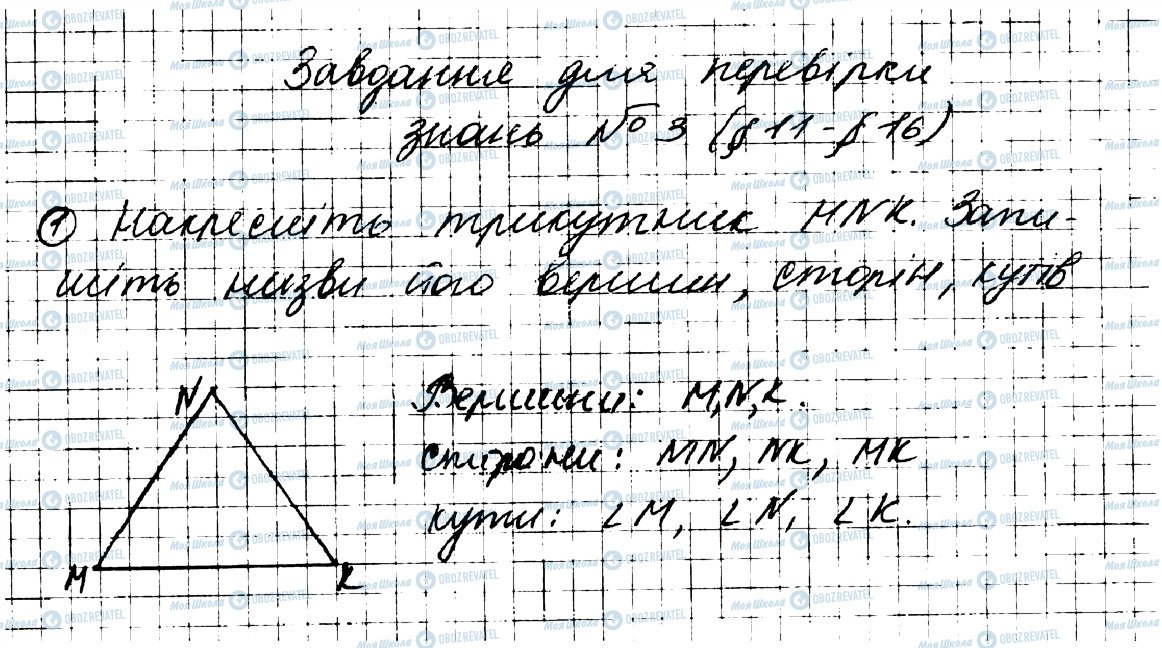 Завдання для перевірки
знань № 3 (§ 11 - § 16)
1 Накресліть трикутник MNK. Запи-
шіть назви його вершин, сторін, кутів
N
Вершини: M, N, K.
сторони: MN, NK, MK
кути: ∠M, ∠N, ∠K.
M K
МояШкола OBOZREVATEL